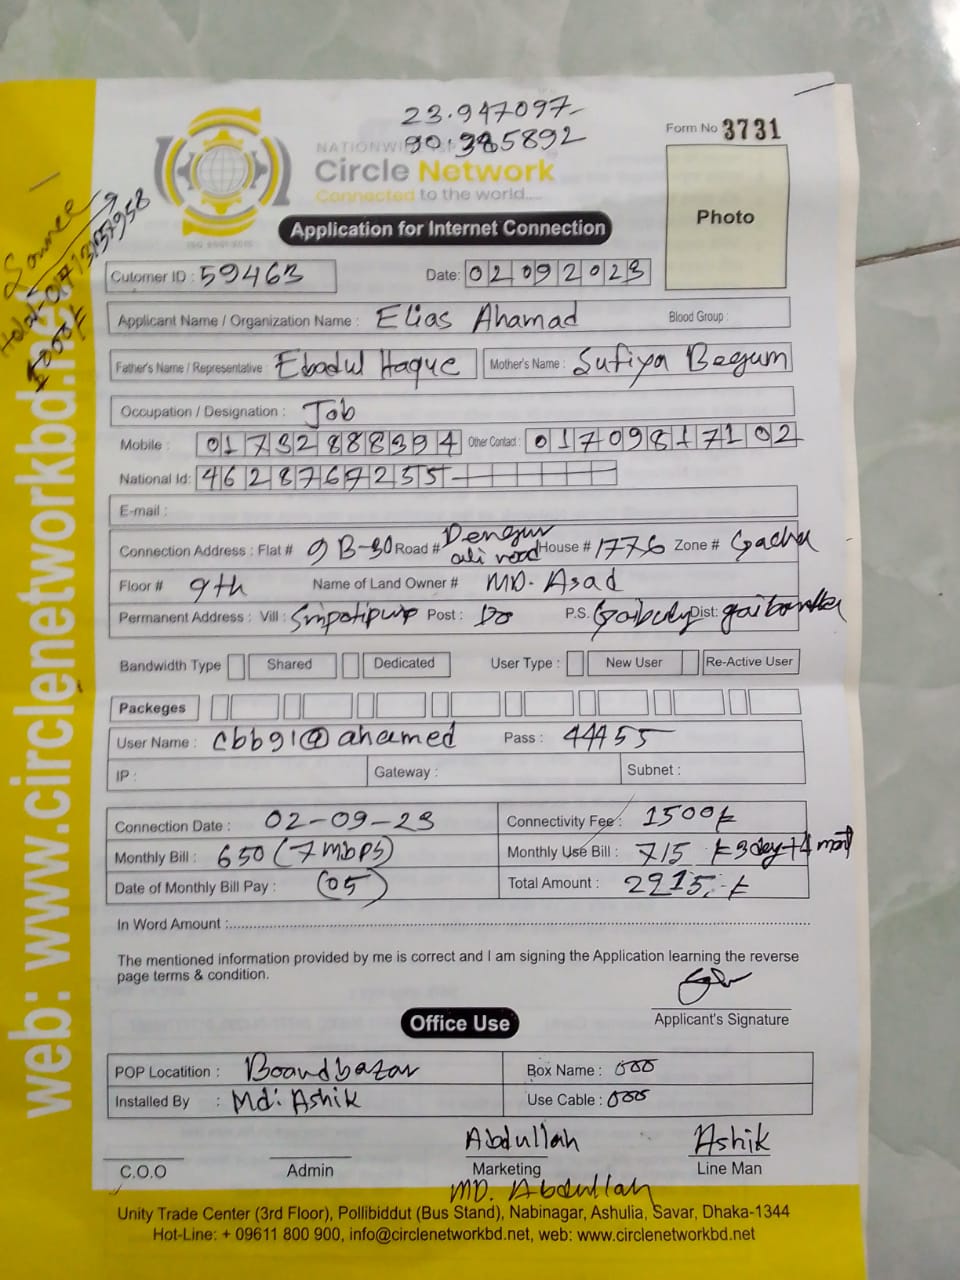 23.947097
90.385892
Form No 3731
NATIONWIDE
Circle Network
Connected to the world....
ISO 9001:2015
Photo
Application for Internet Connection
Cutomer ID : 59463 Date: 02092023
Applicant Name / Organization Name : Elias Ahamad Blood Group :
Father's Name / Representative : Ebadul Haque Mother's Name : Sufiya Begum
Occupation / Designation : Job
Mobile : 01732888394 Other Contact : 01709817102
National Id: 4628767255
E-mail :
Connection Address : Flat # 9 B-30 Road # Dengur ali rood House # 1776 Zone # Gacha
Floor # 9th Name of Land Owner # MD. Asad
Permanent Address : Vill : Sripotipur Post : Do P.S. Dist: gaibandha
Bandwidth Type Shared Dedicated User Type : New User Re-Active User
Packeges
User Name : cbb91@ahamed Pass : 44455
IP : Gateway : Subnet :
Connection Date : 02-09-23 Connectivity Fee : 1500/=
Monthly Bill : 650 (7 mbps) Monthly Use Bill : 715 /= 3day+4 mont
Date of Monthly Bill Pay : (05) Total Amount : 2215/=
In Word Amount :
The mentioned information provided by me is correct and I am signing the Application learning the reverse
page terms & condition.
Applicant's Signature
Office Use
POP Locatition : Boardbazar Box Name :
Installed By : Md: Ashik Use Cable :
Abdullah Ashik
C.O.O Admin Marketing Line Man
MD. Abdullah
Unity Trade Center (3rd Floor), Pollibiddut (Bus Stand), Nabinagar, Ashulia, Savar, Dhaka-1344
Hot-Line: + 09611 800 900, info@circlenetworkbd.net, web: www.circlenetworkbd.net
web: www.circlenetworkbd.net